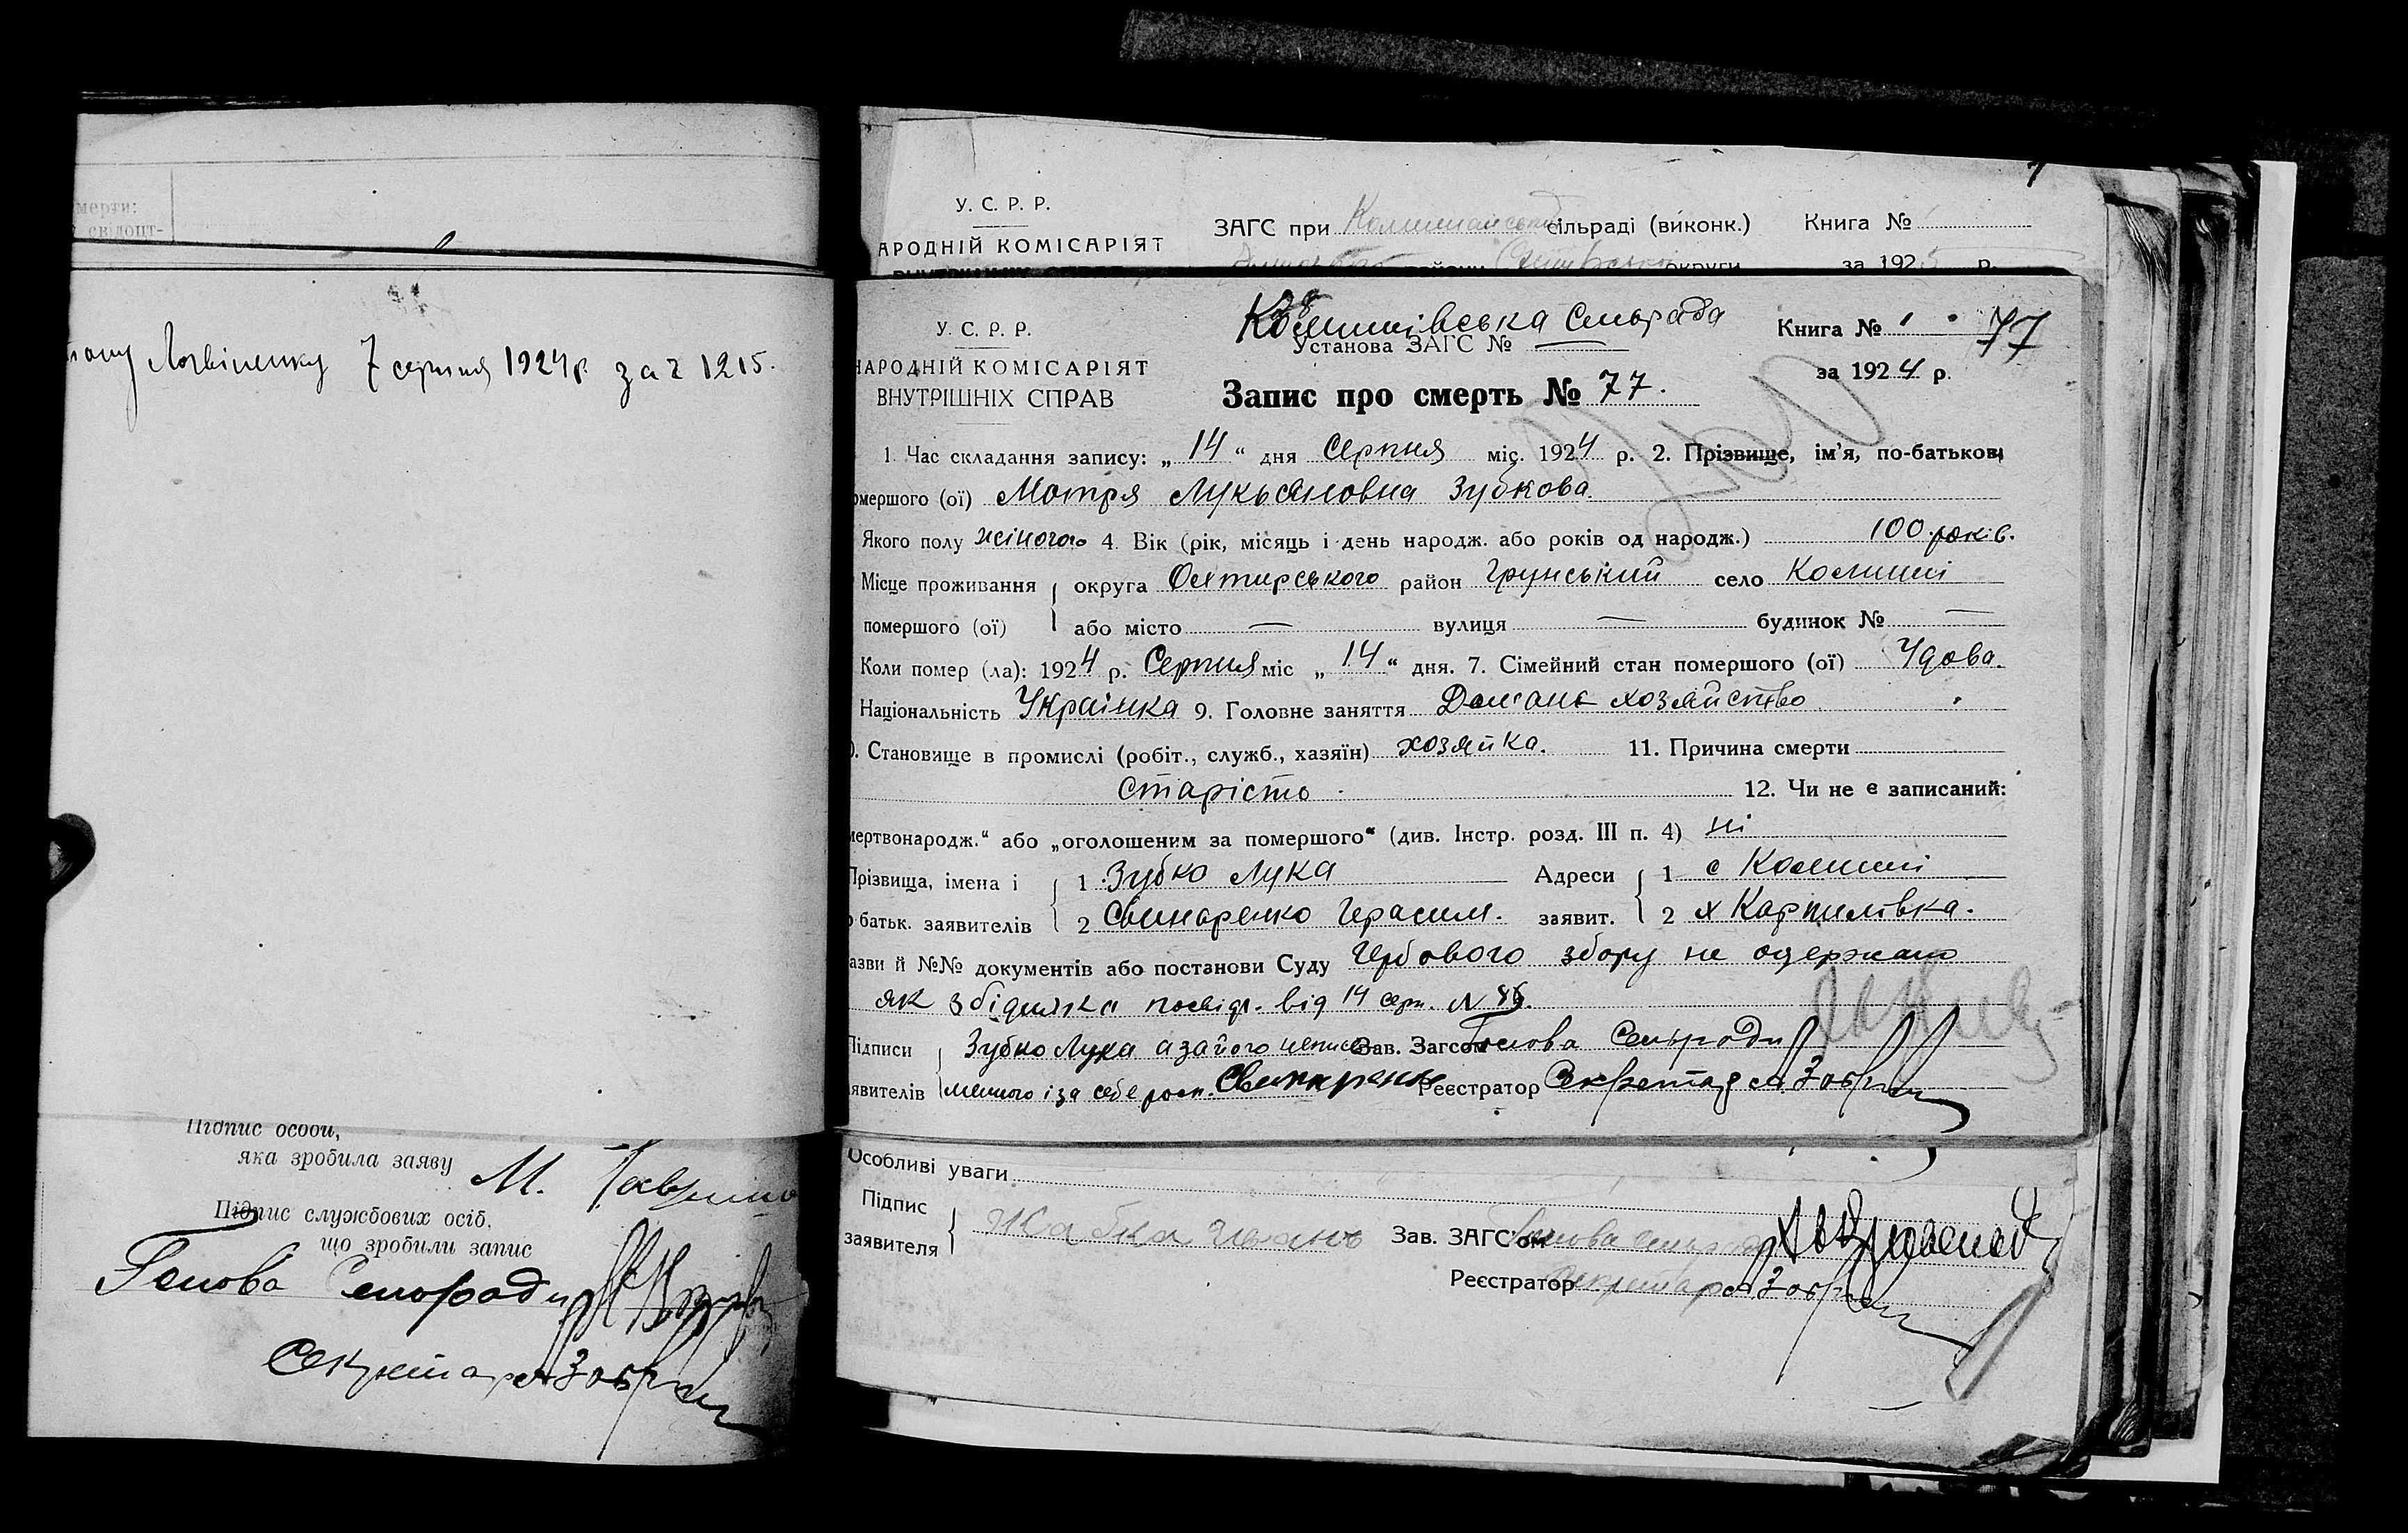 мерти:
свідоцт-
Логвіненку 7 серпня 1924 р. за № 1215.
Підпис особи,
яка зробила заяву М.
Підпис службових осіб,
що зробили запис
Голова Сельради
Секретар
У. С. Р. Р.
АРОДНІЙ КОМІСАРІЯТ
ЗАГС при сільраді (виконк.) Книга №
округи за 1925 р.
У. С. Р. Р.
НАРОДНІЙ КОМІСАРІЯТ
ВНУТРІШНІХ СПРАВ
Сільрада
Установа ЗАГС № —
Книга № 1 77
за 1924 р.
Запис про смерть № 77.
1. Час складання запису: „14“ дня Серпня міс. 1924 р. 2. Прізвище, ім'я, по-батькові
омершого (ої) Мотря Лукьяновна Зубкова
Якого полу жіночого 4. Вік (рік, місяць і день народж. або років од народж.) 100 років.
Місце проживання округа Охтирського район Грунський село Комиші
помершого (ої) або місто — вулиця — будинок № —
Коли помер (ла): 1924 р. Серпня міс „14“ дня. 7. Сімейний стан помершого (ої) Удова.
Національність Українка 9. Головне заняття Домашнє хозяйство
0. Становище в промислі (робіт., служб., хазяїн) хозяйка. 11. Причина смерти
старісто 12. Чи не є записаний:
мертвонародж.“ або „оголошеним за помершого“ (див. Інстр. розд. III п. 4) ні
Прізвища, імена і 1 Зубко Лука Адреси 1 с Комиші
о батьк. заявителів 2 Свинаренко Герасим. заявит. 2 х Карпилівка.
азви й №№ документів або постанови Суду Гербового збору не одержано
як з біднячка посвідг. від 14 серп. №
Підписи Зубко Лука а за його непис Зав. Загсом Голова Сельради
явителів менного і за себе росп. Свинаренко Реєстратор Секретар
Особливі уваги
Підпис
заявителя Жабка Иванъ Зав. ЗАГС'ом Голова
Реєстратор Секретар